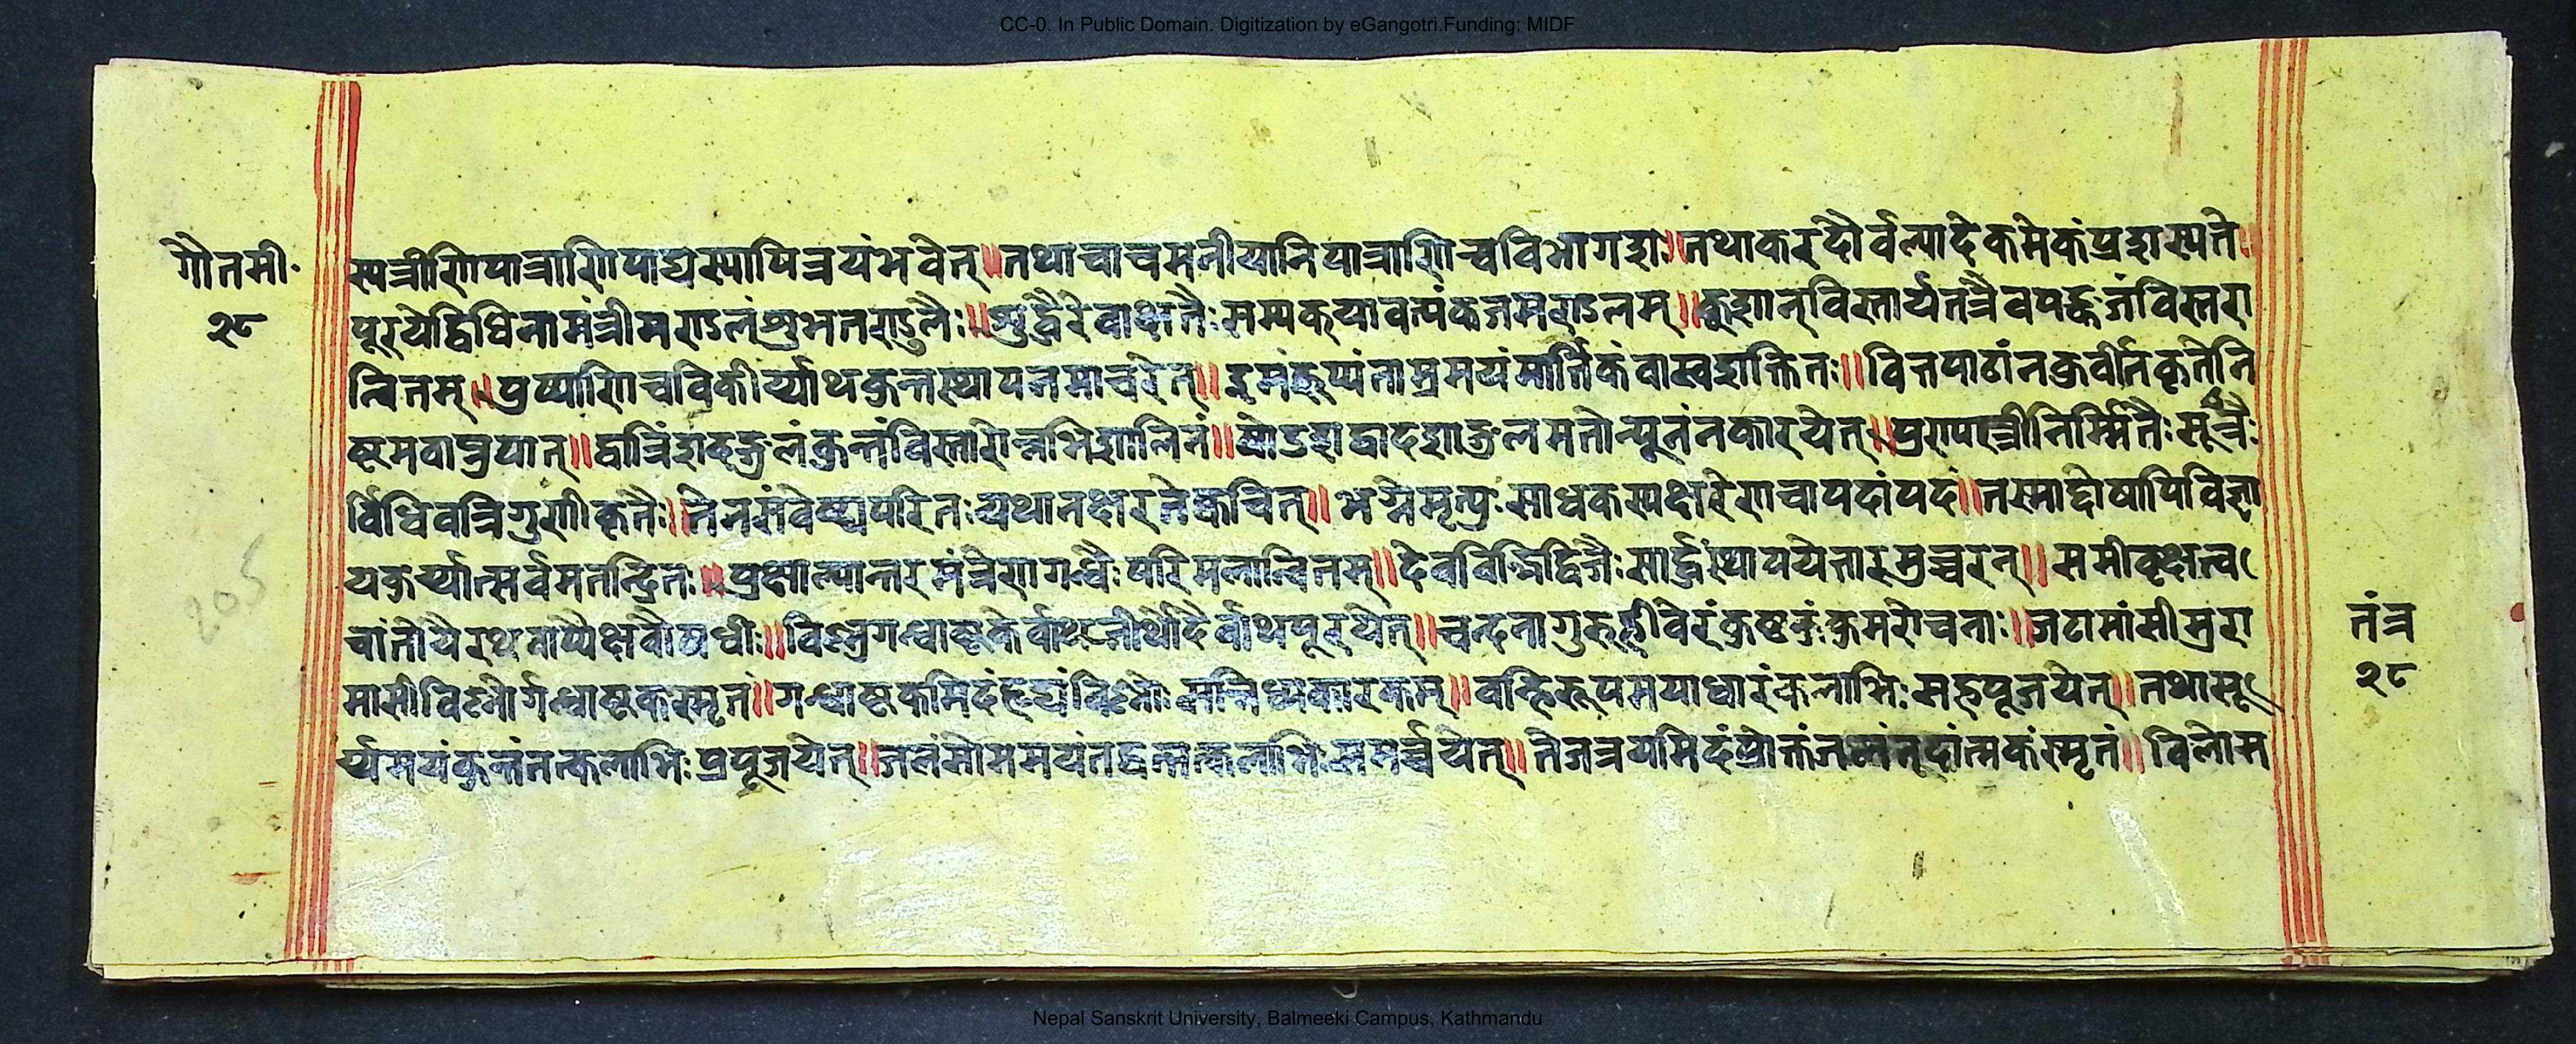 CC-0. In Public Domain. Digitization by eGangotri.Funding: MIDF
गौतमी
२८
स्यत्रीणिपात्राणिपाद्यस्यापित्रयंभवेत्॥तथाचाचमनीयानिपात्राणिचविभागशः॥तथाकरदौर्वल्यादेकमेकंप्रशस्यते॥
पूरयेद्विधिनामंत्रीमण्डलंशुभतण्डुलैः॥शुद्धैरेवाक्षतैःसम्यक्यावत्पंकजमण्डलम्॥कुशान्विस्तार्यतत्रैवपङ्कजंविस्तरा
न्वितम्॥पुष्पाणिचविकीर्य्याथकुम्भस्थापनमाचरेत्॥हेमंरूप्यंताम्रमयंमार्त्तिकंवास्वशक्तितः॥वित्तपाठांनकुर्वीतकृतेनि
ष्टमवाप्नुयात्॥द्वात्रिंशदङ्गुलंकुम्भंविस्तारोन्नभिशालिनं॥षोडशद्वादशाङ्गुलमतोन्यूनंनकारयेत्॥पुरापत्त्रीनिर्म्मितैःसूत्रैः
र्विधिवत्रिगुणीकृतैः॥तेनसंवेष्ट्यपरितःयथानक्षरतेक्वचित्॥भग्नेमृत्युःसाधकस्यक्षरेणचापदांपदं॥तस्माद्दोषापिविज्ञा
यकुर्य्यात्सर्वमतन्द्रितः॥प्रक्षाल्यान्तरमंत्रेणगन्धैःपरिमलान्वितम्॥देवविद्भिर्द्विजैःसार्द्धंस्थापयेत्तारमुच्चरन्॥समीवृक्षत्व
चांतोयैरथवाप्यैक्षवौषधीः॥विष्णुगन्धाष्टकैर्वाथतीर्थोदैर्वाथपूरयेत्॥चन्दनागुरुह्रीवेरंकुष्टकुंकुमरोचनाः॥जटामांसीमुरा
मासीविष्णोर्गन्धाष्टकंस्मृतं॥गन्धाष्टकमिदंहृद्यंविष्णोःसन्निध्यकारकम्॥वन्हिरूपमयाधारंकलाभिःसहपूजयेत्॥तथासू
र्य्यमयंकुम्भंतत्कलाभिःप्रपूजयेत्॥जलंसोममयंतद्वत्तत्कलाभिःसमर्च्चयेत्॥तेजत्रयमिदंप्रोक्तं स्मृतं॥विलोम
तंत्र
२८
205
Nepal Sanskrit University, Balmeeki Campus, Kathmandu